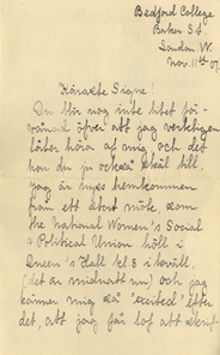 Bedford College
Baker St.
London. W.
Nov. 11th 07.
Käraste Signe!
Du blir nog inte litet för-
vånad öfver att jag verkligen
låter höra af mig och det
har du ju också skäl till.
Jag är nyss hemkommen
från ett stort möte, som
the National Women's Social
& Political Union höll i
Queen's Hall kl. 8 i kväll.
(det är midnatt nu) och jag
känner mig så "excited" efter
det, att jag får lof att skrif-